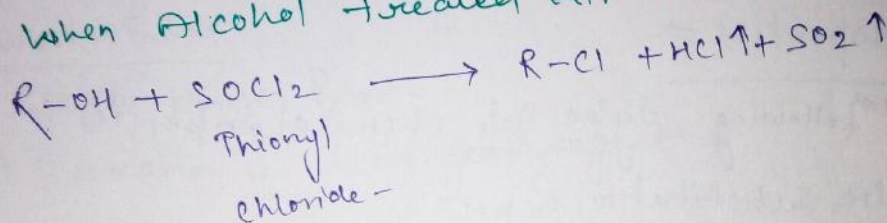 When Alcohol treated
R-OH + SOCl2 → R-Cl + HCl↑ + SO2↑
Thionyl
chloride -